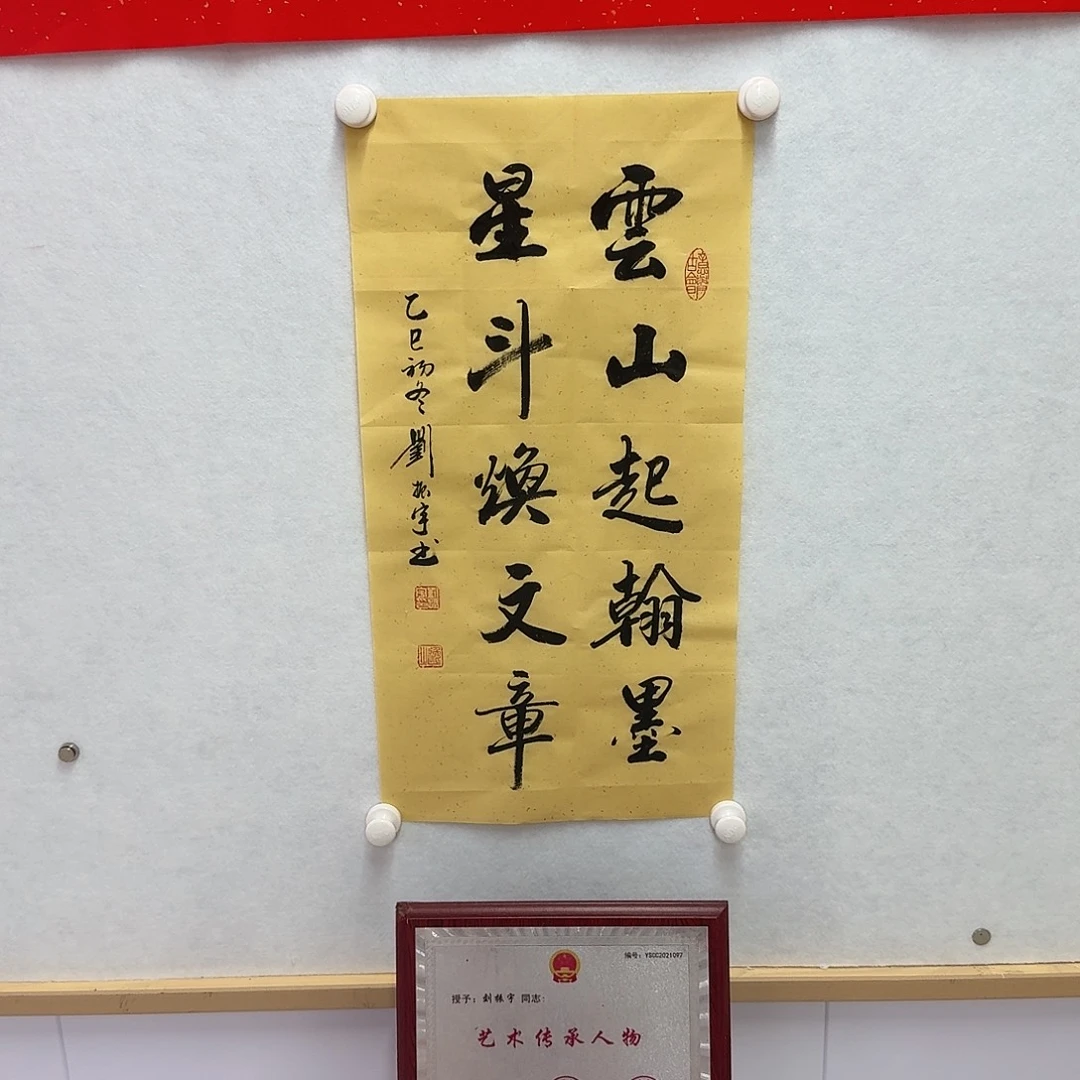 雲山起翰墨
星斗煥文章
乙巳初冬劉振宇书
编号：YSCC2021097
授予：刘振宇 同志：
艺术传承人物